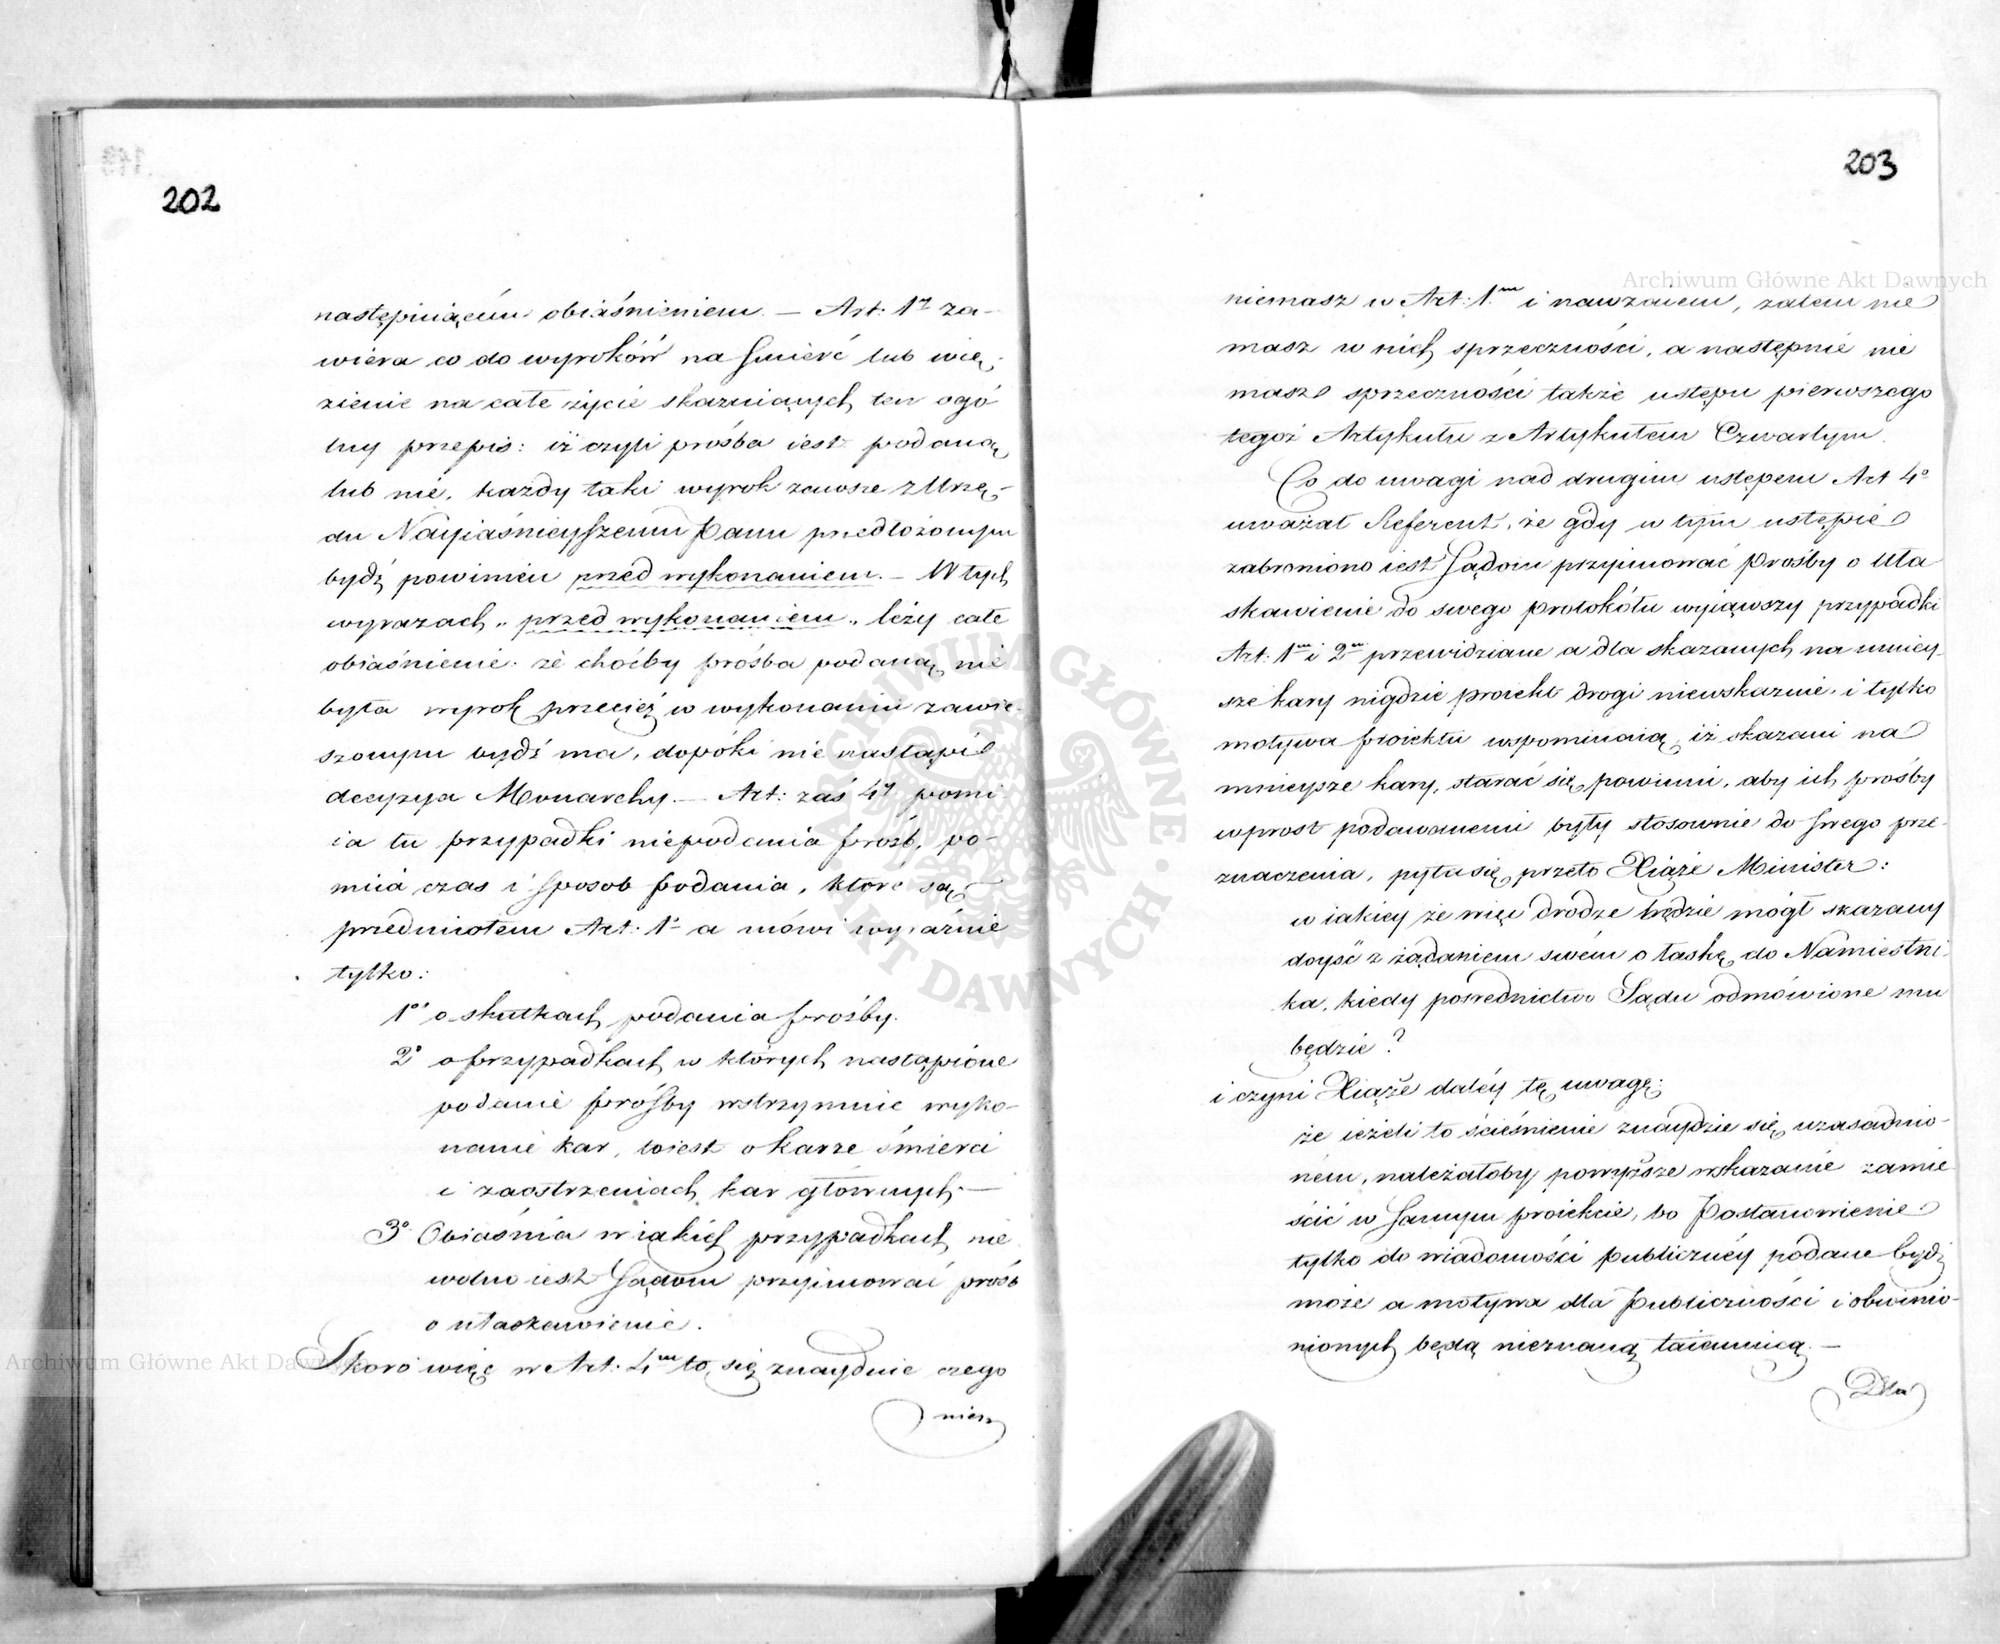 202
następuiącém obiaśnieniem. — Art: 1ʸ za-
wiera co do wyroków na śmierć lub wię-
zienie na całe życie skazuiących ten ogó
lny przepis: iż czyli prośba iest podaną
lub nié, każdy taki wyrok zawsze z Urzę-
du Nayiaśnieyszemu Panu przedłożonym
bydź powinien przed wykonaniem. — W tych
wyrazach „przed wykonaniem„ leży całe
obiaśnienie. że choćby prośba podaną nie
była wyrok przecięż w wykonaniu zawie-
szonym bydź ma, dopóki nie nastąpi
decyzya Monarchy. — Art: zaś 4ʸ pomi
ia tu przypadki niepodania prośb, po-
miia czas i sposob podania, które są
przedmiotem Art: 1º a mówi wyraźnie
tylko:
1º o skutkach podania prośby.
2º o przypadkach w których nastąpione
podanie prośby wstrzymuie wyko-
nanie kar, to iest o karze śmierci
i zaostrzeniach kar głównych. —
3º Obiaśnia w iakich przypadkach nie
wolno iest Sądom przyimować prośb
o ułaskawienie.
Skoro więc w Art: 4ᵐ to się znayduie czego
niem
203
niemasz w Art: 1ᵐ i nawzaiem, zatem nie
masz w nich sprzeczności, a następnie nie
masz sprzeczności także ustępu pierwszego
tegoż Artykułu z Artykułem Czwartym.
Co do uwagi nad drugim ustępem Art 4º
uważał Referent, że gdy w tym ustępie
zabroniono iest Sądom przyimować prośby o Uła
skawienie do swego protokółu wyiąwszy przypadki
Art: 1ᵐ i 2ᵐ przewidziane a dla skazanych na mniey-
sze kary nigdzie proiekt drogi niewskazuie, i tylko
motywa proiektu wspominaią, iż skazani na
mnieysze kary, starać się powinni, aby ich prośby
wprost podawanemi były stosownie do swego prze-
znaczenia, pyta się przeto Xiąże Minister:
w iakiey że więc drodze będzie mógł skazany
doyść z żądaniem swém o łaskę do Namiestni-
ka, kiedy pośrednictwo Sądu odmówione mu
będzie?
i czyni Xiąże daléy tę uwagę:
że ieżeli to ścieśnienie znaydzie się uzasadnio-
ném, należałoby powyższe wskazanie zamie
ścić w samym proiekcie, bo Postanowienie
tylko do wiadomości publicznéy podane bydź
może a motywa dla Publiczności i obwinio-
nionych będą nieznaną taiemnicą. —
Dla
Archiwum Główne Akt Dawnych
Archiwum Główne Akt Dawnych
ARCHIWUM GŁÓWNE AKT DAWNYCH